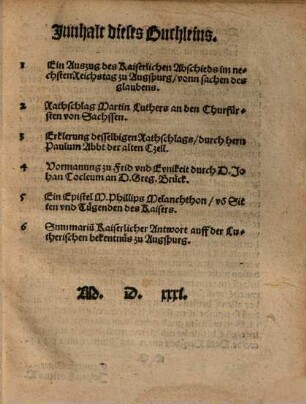 Innhalt dieses Buchleins.
1 Ein Auszug des Kaiserlichen Abschieds im ne-
chsten Reichstag zu Augspurg/vonn sachen des
glaubens.
2 Rathschlag Martin Luthers an den Churfür-
sten von Sachssen.
3 Erklerung desselbigen Rathschlags/durch hern
Paulum Abbt der alten Czell.
4 Vormanung zu Frid vnd Eynikeit durch D. Jo
han Cocleum an D. Greg. Brück.
5 Ein Epistel M. Phillips Melanchthon/võ Sit
ten vnd Tügenden des Kaisers.
6 Summariũ Kaiserlicher Antwort auff der Lu-
therischen bekentnüs zu Augspurg.
M. D. xxxl.